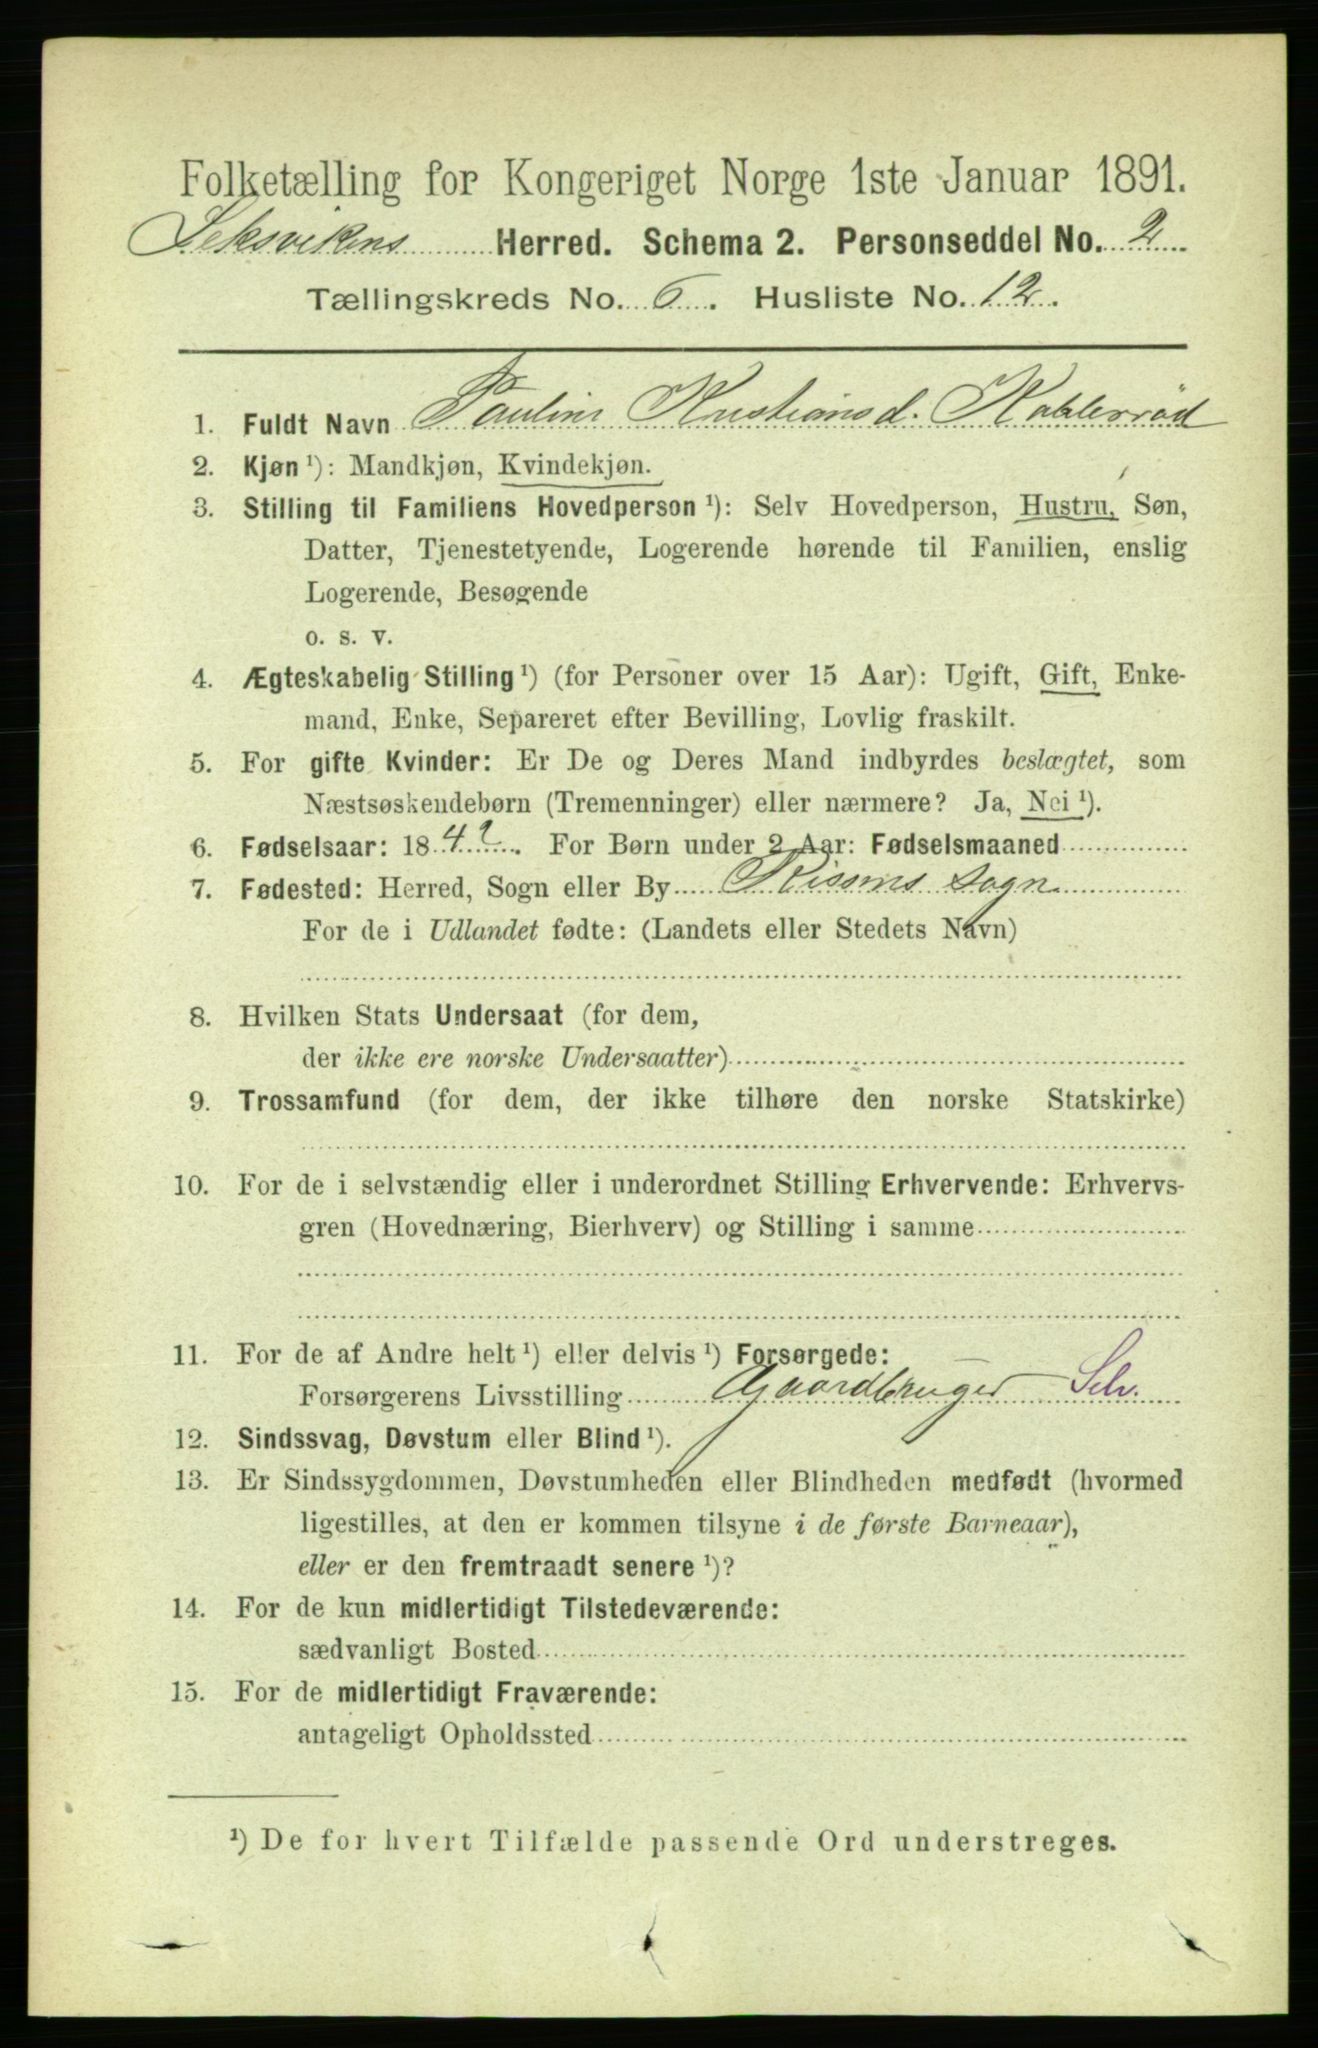 Folketælling for Kongeriget Norge 1ste Januar 1891.
Leksvikens Herred. Schema 2. Personseddel No. 2
Tællingskreds No. 6. Husliste No. 12.
1. Fuldt Navn Pauline Kristiansd.
2. Kjøn ¹): Mandkjøn, Kvindekjøn.
3. Stilling til Familiens Hovedperson ¹): Selv Hovedperson, Hustru, Søn,
Datter, Tjenestetyende, Logerende hørende til Familien, enslig
Logerende, Besøgende
o. s. v.
4. Ægteskabelig Stilling ¹) (for Personer over 15 Aar): Ugift, Gift, Enke-
mand, Enke, Separeret efter Bevilling, Lovlig fraskilt.
5. For gifte Kvinder: Er De og Deres Mand indbyrdes beslægtet, som
Næstsøskendebørn (Tremenninger) eller nærmere? Ja, Nei ¹).
6. Fødselsaar: 1842. For Børn under 2 Aar: Fødselsmaaned
7. Fødested: Herred, Sogn eller By Rissens Sogn
For de i Udlandet fødte: (Landets eller Stedets Navn)
8. Hvilken Stats Undersaat (for dem,
der ikke ere norske Undersaatter)
9. Trossamfund (for dem, der ikke tilhøre den norske Statskirke)
10. For de i selvstændig eller i underordnet Stilling Erhvervende: Erhvervs-
gren (Hovednæring, Bierhverv) og Stilling i samme
11. For de af Andre helt ¹) eller delvis ¹) Forsørgede:
Forsørgerens Livsstilling Gaardbruger Selv.
12. Sindssvag, Døvstum eller Blind ¹).
13. Er Sindssygdommen, Døvstumheden eller Blindheden medfødt (hvormed
ligestilles, at den er kommen tilsyne i de første Barneaar),
eller er den fremtraadt senere ¹)?
14. For de kun midlertidigt Tilstedeværende:
sædvanligt Bosted
15. For de midlertidigt Fraværende:
antageligt Opholdssted
¹) De for hvert Tilfælde passende Ord understreges.